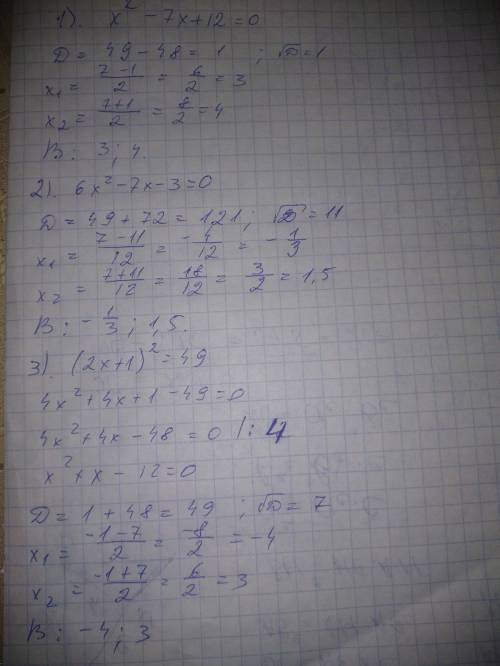 1). x² - 7x + 12 = 0
D = 49 - 48 = 1 ; √D = 1
x₁ = (7-1)/2 = 6/2 = 3
x₂ = (7+1)/2 = 8/2 = 4
В: 3; 4.
2). 6x² - 7x - 3 = 0
D = 49 + 72 = 121 ; √D = 11
x₁ = (7-11)/12 = -4/12 = -1/3
x₂ = (7+11)/12 = 18/12 = 3/2 = 1,5
В: -1/3 ; 1,5.
3). (2x+1)² = 49
4x² + 4x + 1 - 49 = 0
4x² + 4x - 48 = 0 /: 4
x² + x - 12 = 0
D = 1 + 48 = 49 ; √D = 7
x₁ = (-1-7)/2 = -8/2 = -4
x₂ = (-1+7)/2 = 6/2 = 3
В: -4; 3